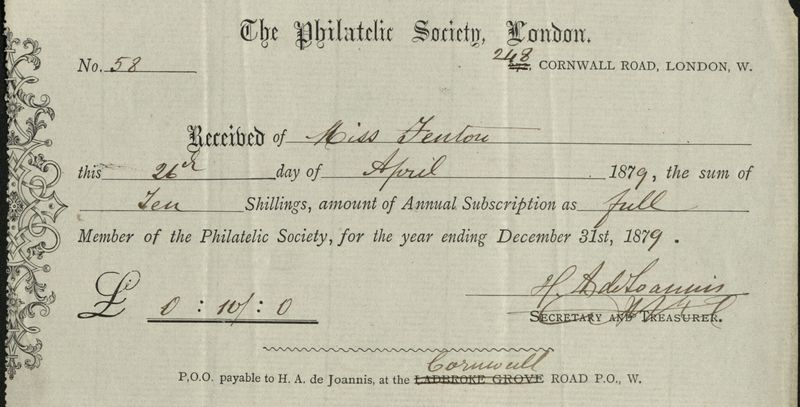 The Philatelic Society, London.
No. 58
248, CORNWALL ROAD, LONDON, W.
Received of Miss Fenton
this 26th day of April 1879, the sum of
Ten Shillings, amount of Annual Subscription as full
Member of the Philatelic Society, for the year ending December 31st, 1879.
£ 0 : 10/ : 0
H. A. de Joannis
SECRETARY AND TREASURER.
Cornwall
P.O.O. payable to H. A. de Joannis, at the LADBROKE GROVE ROAD P.O., W.